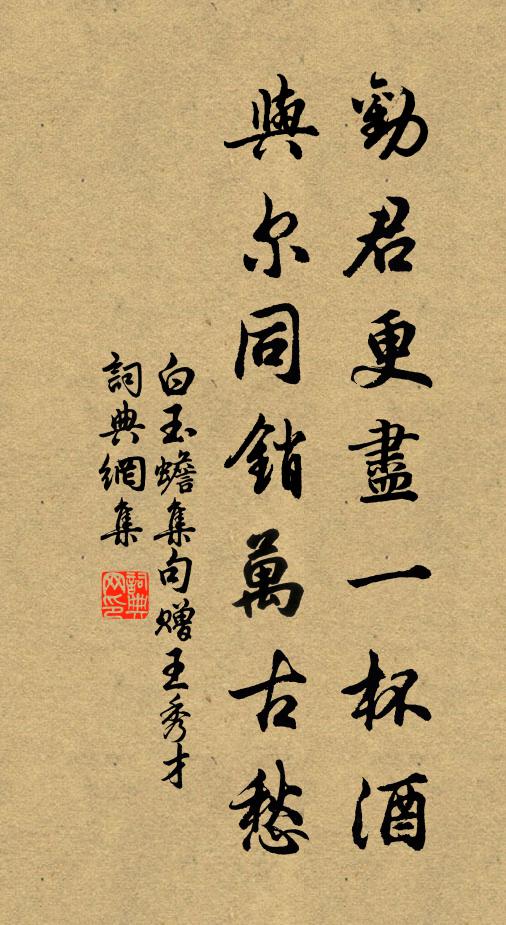 勸君更盡一杯酒
與尔同銷萬古愁
白玉蟾集句赠王秀才
詞典網集
詞典网印